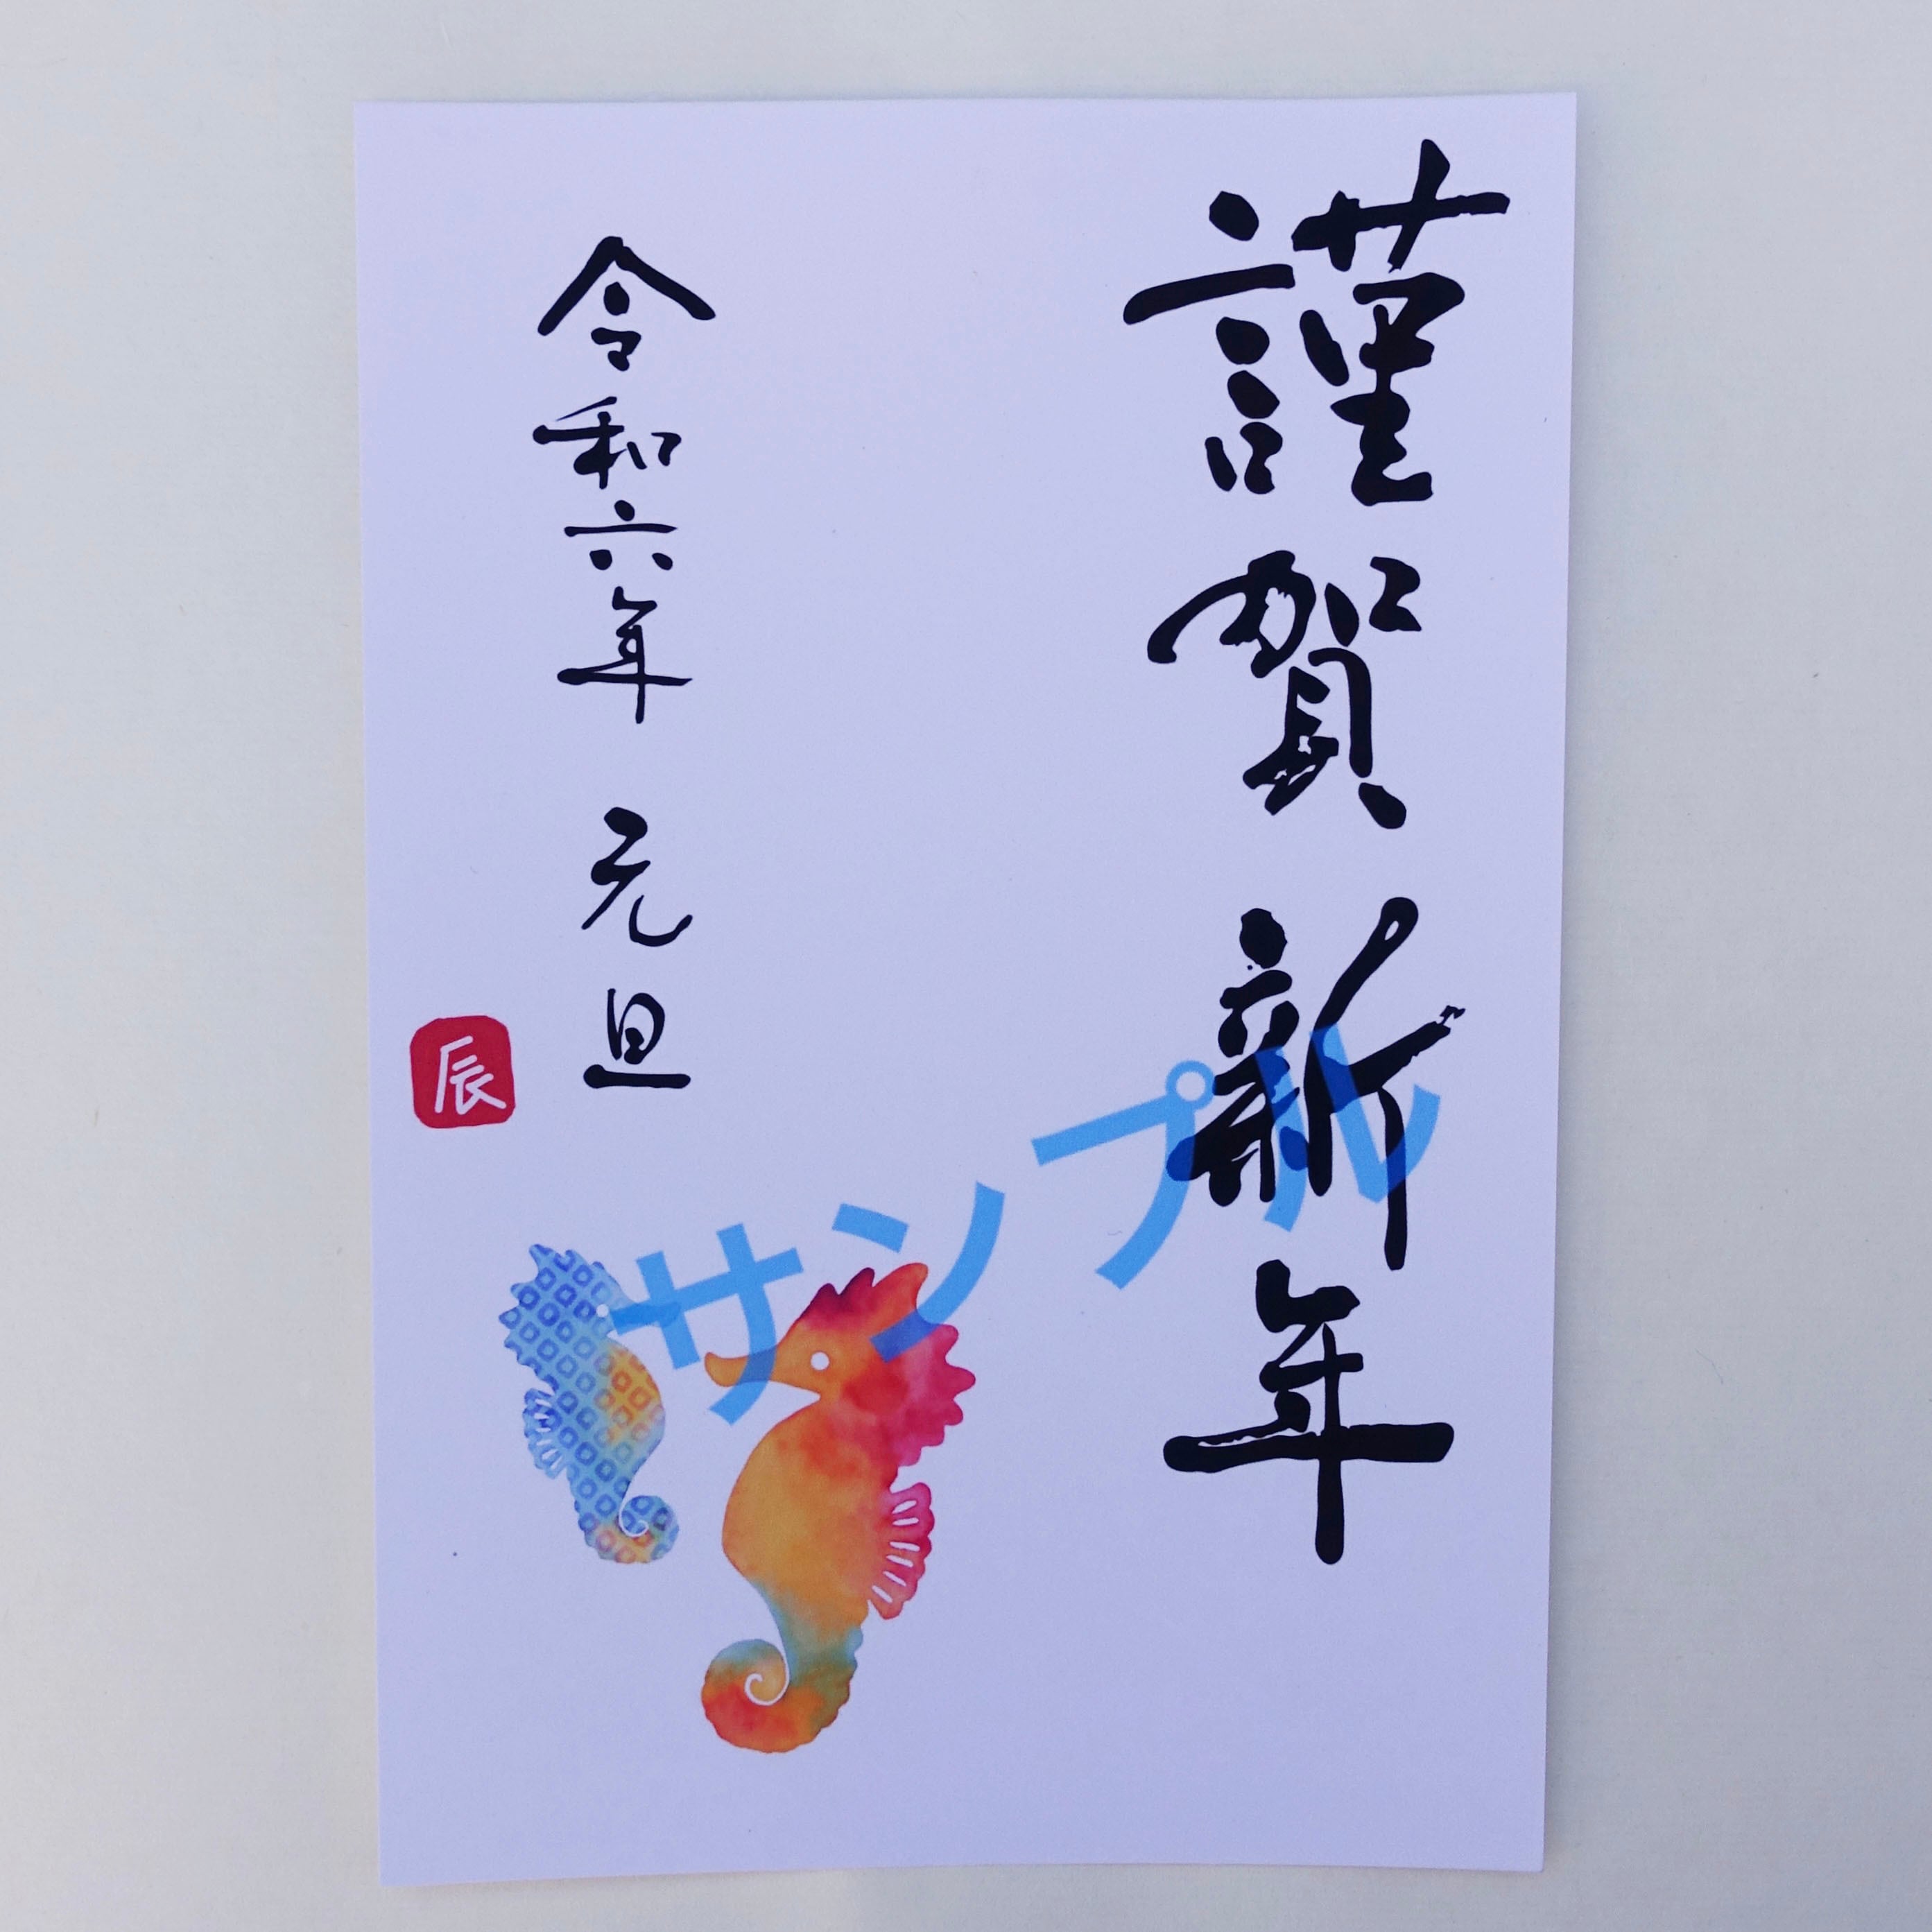 謹賀新年
令和六年 元旦
辰
サンプル